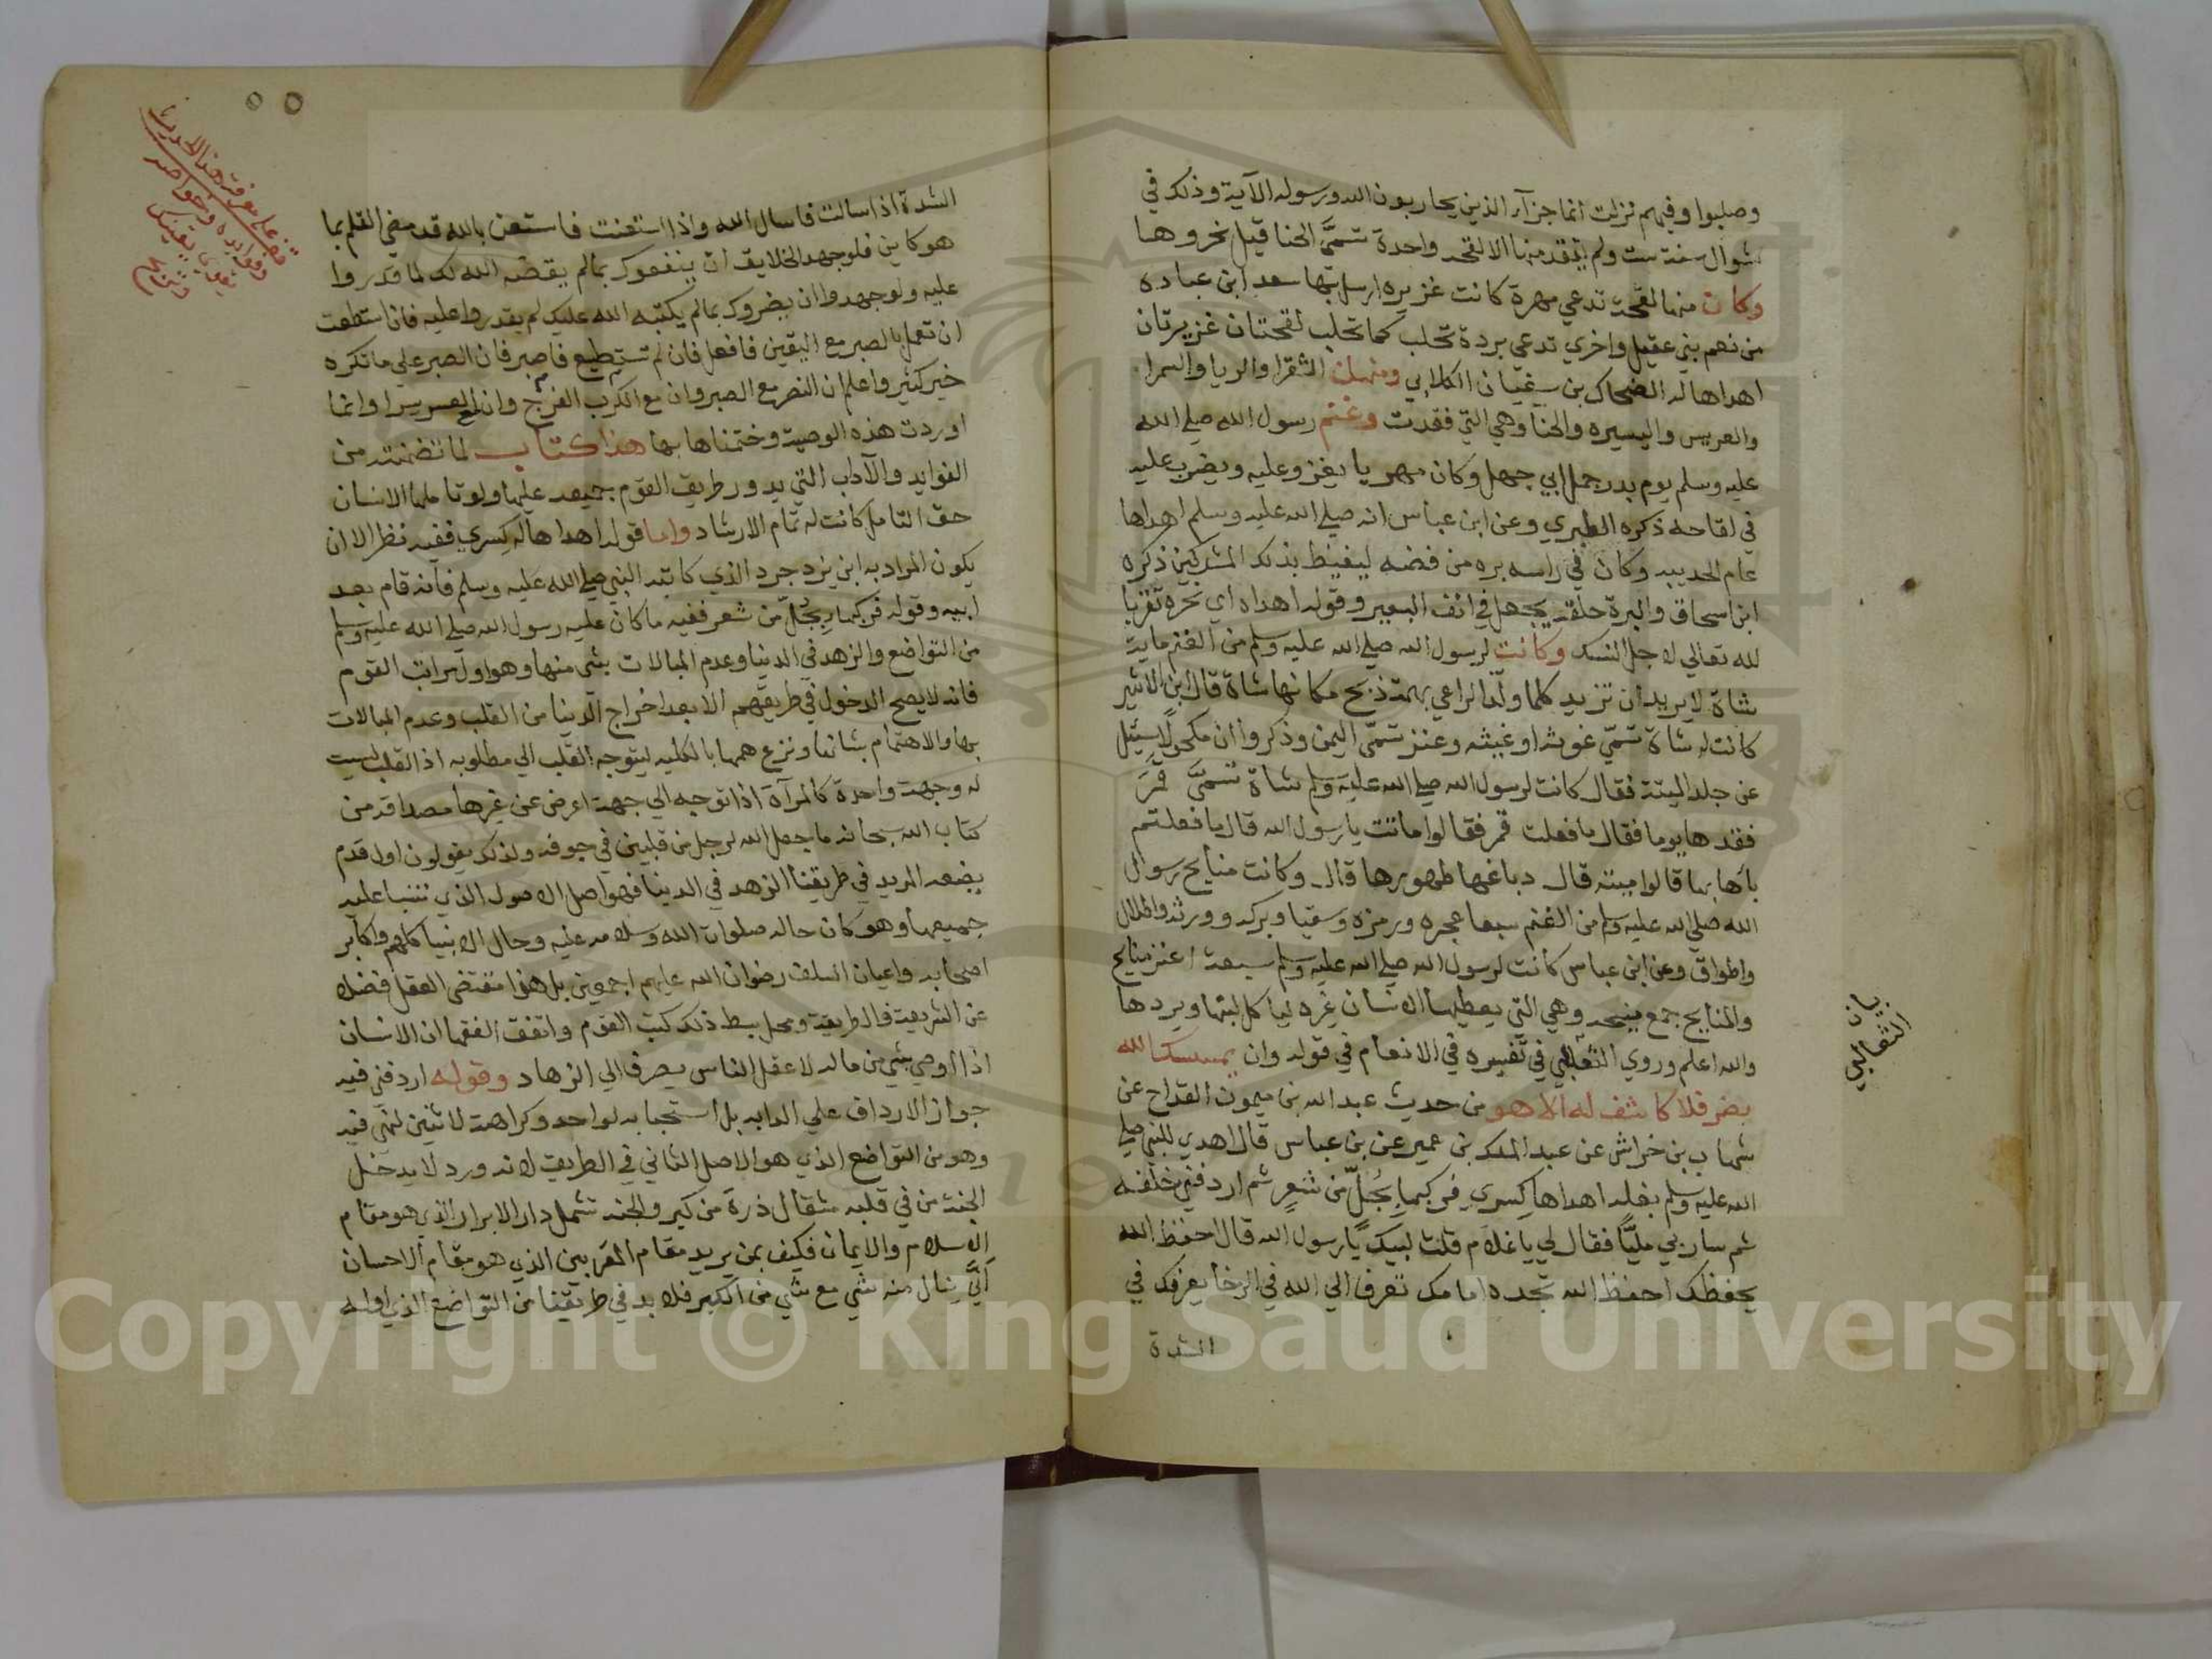 وصلبوا وفيهم نزلت انما جزآء الذين يحاربون الله ورسوله الآية وذلك في
شوال سنة ست ولم يفقد منها الا لقحه واحدة تسمَّى الحنا قيل نحروها
وكان منها لقحة تدعي مهرة كانت غزيره ارسل بها سعد ابن عباده
من نعم بني عقيل واخري تدعي بردة تحلب كما تحلب لقحتان غزيرتان
اهداها له الضحاك بن سفيان الكلابي ومنهن الشقرا والريا والسمرا
والعريس واليسيره والحنا وهي التي فقدت وغنم رسول الله صلي الله
عليه وسلم يوم بدر جمل ابي جهل وكان مهريا يغزو عليه ويضرب عليه
في لقاحه ذكره الطبري وعن ابن عباس انه صلي الله عليه وسلم اهداها
عام الحديبيه وكان في راسه بره من فضه ليغيظ بذلك المشركين ذكره
ابن اسحاق والبرة حلقه يجعل في انف البعير وقوله اهداه اي نحره تقربا
لله تعالي لاجل النسك وكانت لرسول الله صلي الله عليه وسلم من الغنم ماية
شاة لا يريد ان تزيد كلما ولّد الراعي بهمة ذبح مكانها شاة قال ابن الاثير
كانت له شاة تسمّي غوثه او غيثه وعنز تسمّى اليمن وذكروا ان مكحولًا سئل
عن جلد الميتة فقال كانت لرسول الله صلي الله عليه وسلم شاة تسمىَّ قمَرَ
ففقدها يوما فقال ما فعلت قمر فقالوا ماتت يا رسول الله قال ما فعلتم
باهابها قالوا ميتة قال دباغها طهورها قال وكانت منايح رسول
الله صلي الله عليه وسلم من الغنم سبعا عجره ورمزه وسقيا وبركه وورثه واطلال
واطواق وعن ابن عباس كانت لرسول الله صلي الله عليه وسلم سبعة اعنز منايح
والمنايح جمع منيحه وهي التي يعطيها الانسان غيره لياكل لبنها ويردها
والله اعلم وروي الثعلبي في تفسيره في الانعام في قوله وان يمسسك الله
بضر فلا كاشف له الا هو من حديث عبد الله بن ميمون القداح عن
شهاب بن خراش عن عبد الملك بن عمير عن بن عباس قال اهدي للنبي صلي
الله عليه وسلم بغله اهداها كسري فركبها بجُلّ من شعرٍ ثم اردفني خلفه
ثم سار بي مليًّا فقال لي يا غلام قلت لبيك يا رسول الله قال احفظ الله
يحفظك احفظ الله تجده امامك تعرف الي الله في الرخا يعرفك في
الشدة
الثعالبي
الشدة اذا سالت فاسال الله واذا استعنت فاستعن بالله قد مضي القلم بما
هو كاين فلو جهد الخلايق ان ينفعوك بمالم يقضه الله لك لما قدروا
عليه ولو جهدوا ان يضروك بمالم يكتبه الله عليك لم يقدروا عليه فان استطعت
ان تعمل بالصبر مع اليقين فافعل فان لم تستطيع فاصبر فان الصبر علي ما تكره
خير كثير واعلم ان النصر مع الصبر وان مع الكرب الفرج وان مع العسر يسرا وانما
اوردت هذه الوصية وختمناها بها هذا كتاب لما تضمنته من
الفوايد والآداب التي يدور طريق القوم جميعه عليها ولو تاملها الانسان
حق التامل كانت له تمام الارشاد واما قوله اهداها له كسري ففيه نظر الا ان
يكون المراد به ابن يزدجرد الذي كاتبه النبي صلي الله عليه وسلم فانه قام بعد
ابيه وقوله فركبها بجُلّ من شعر ففيه ما كان عليه رسول الله صلي الله عليه وسلم
من التواضع والزهد في الدنيا وعدم المبالات بشي منها وهو اول مراتب القوم
فانه لا يصح الدخول في طريقهم الا بعد اخراج الدنيا من القلب وعدم المبالات
بها والاهتمام بشانها ونزع همها بالكليه ليتوجه القلب الي مطلوبه اذ القلب ليست
له وجهة واحدة كالمرآة اذا توجه الي جهة اعرض عن غيرها مصداقه من
كتاب الله سبحانه ما جعل الله لرجل من قلبين في جوفه ولذلك يقولون اول قدم
يضعه المريد في طريقنا الزهد في الدنيا فهو اصل الاصول الذي تنبنا عليه
جميعها وهو كان حاله صلوات الله وسلامه عليه وحال الانبيا كلهم واكابر
اصحابه واعيان السلف رضوان الله عليهم اجمعين بل هذا مقتضى العقل فضلا
عن الشريعة فالطريقة ومحل بسط ذلك كتب القوم واتفق الفقها ان الانسان
اذا اوصي بشي من ماله لاعقل الناس يصرف الي الزهاد وقوله اردفني فيه
جواز الارداف علي الدابه بل استحبابه لواحد وكراهة لاثنين لنهي فيه
وهو من التواضع الذي هو الاصل الثاني في الطريق لانه ورد لا يدخل
الجنة من في قلبه مثقال ذرة من كبر والجنه تشمل دار الابرار الذي هو مقام
الاسلام والايمان فكيف بمن يريد مقام المقربين الذي هو مقام الاحسان
اَنَّي ينال منه شي مع شي من الكبر فلا بد في طريقنا من التواضع الذي اوله
Copyright © King Saud University